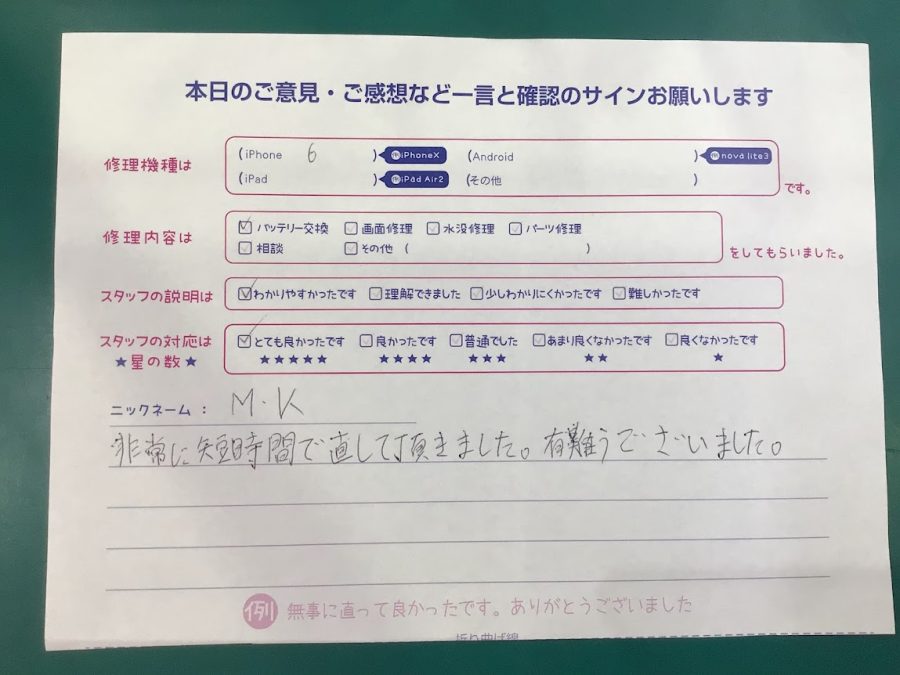 本日のご意見・ご感想など一言と確認のサインお願いします
修理機種は (iPhone 6 ) 例iPhoneX (Android ) 例nova lite3
(iPad ) 例iPad Air2 (その他 ) です。
修理内容は ☑バッテリー交換 ☐画面修理 ☐水没修理 ☐パーツ修理
☐相談 ☐その他 ( ) をしてもらいました。
スタッフの説明は ☑わかりやすかったです ☐理解できました ☐少しわかりにくかったです ☐難しかったです
スタッフの対応は ☑とても良かったです ☐良かったです ☐普通でした ☐あまり良くなかったです ☐良くなかったです
★星の数★ ★★★★★ ★★★★ ★★★ ★★ ★
ニックネーム: M・K
非常に短時間で直して頂きました。有難うございました。
例 無事に直って良かったです。ありがとうございました
折り曲げ線